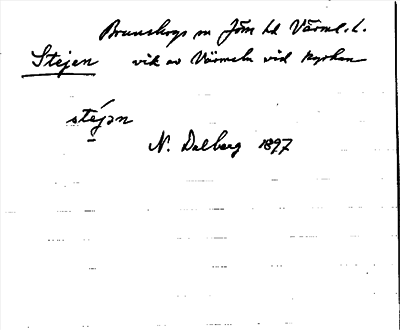 Brunskogs sn Jöss hd Värml. l.
Stejen vik av Värmeln vid kyrkan
stéjan
N. Dalberg 1897